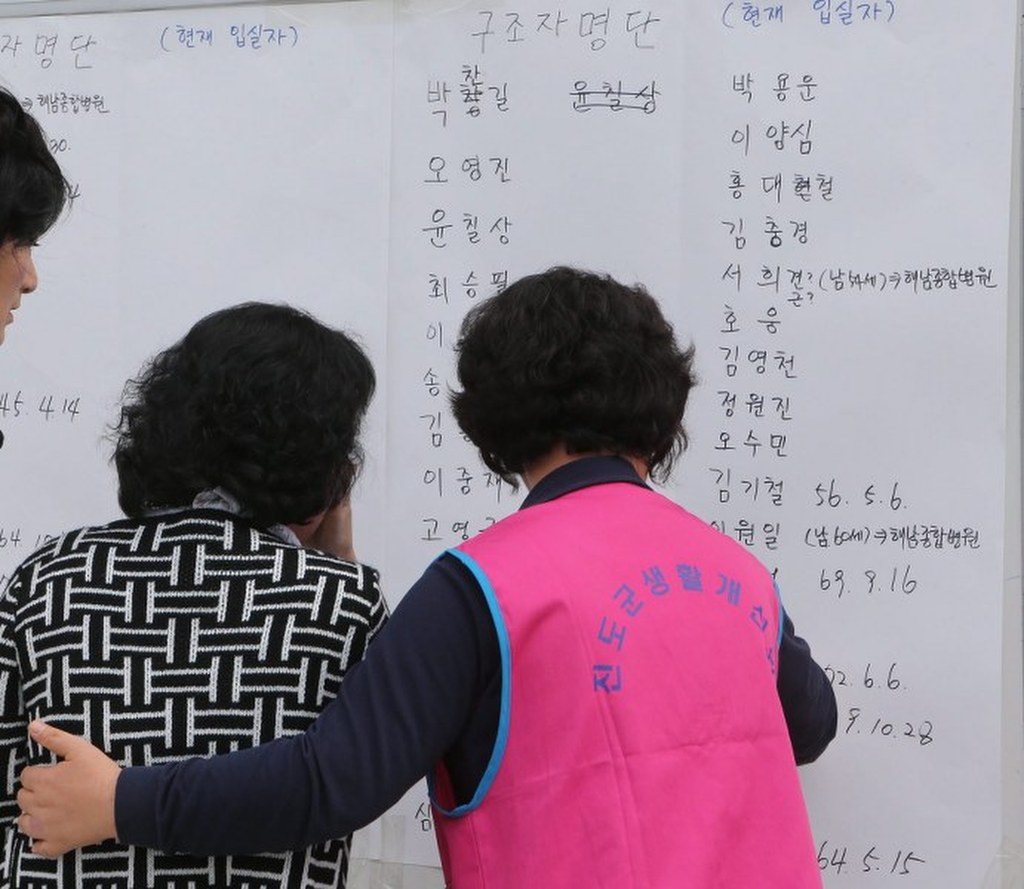 자명단 (현재 입실자)
⇒해남종합병원
30.
4
45. 4. 14
구조자명단 (현재 입실자)
박찬길 윤칠상
오영진
윤칠상
최승필
이
송
김
이중재
고영
심
박용운
이양심
홍대현철
김충경
서희견? (남54세)⇒해남종합병원
근?
호웅
김영천
정원진
오수민
김기철 56. 5. 6.
원일 (남60세)⇒해남종합병원
69. 9. 16
02. 6. 6.
9. 10. 28
64. 5. 15
진도군생활개